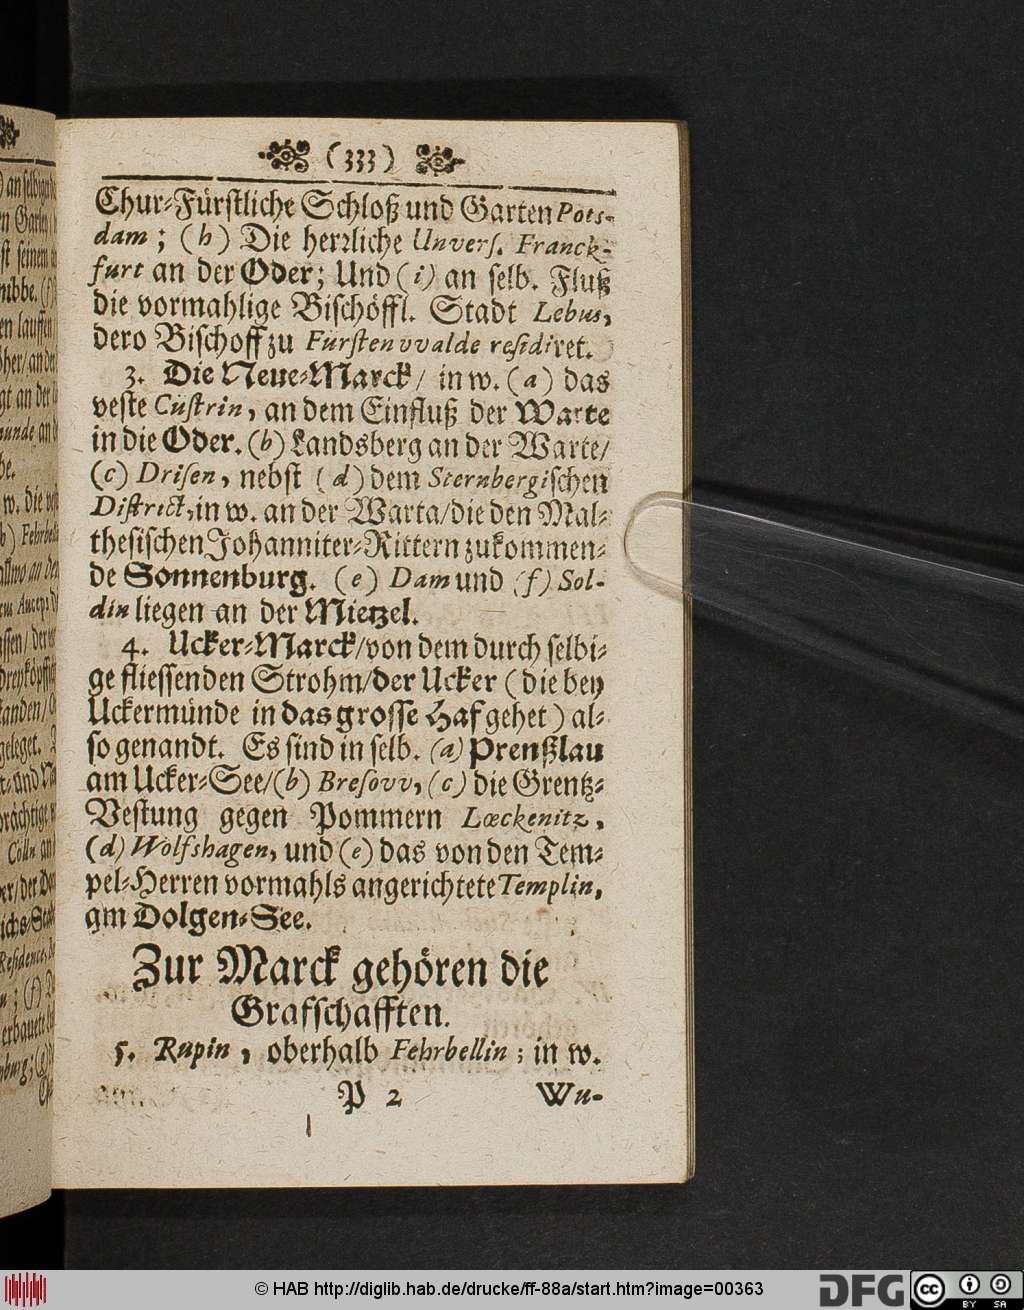 (333)
Chur-Fürstliche Schloß und Garten Pots-
dam; (h) Die herrliche Unvers. Franck-
furt an der Oder; Und (i) an selb. Fluß
die vormahlige Bischöffl. Stadt Lebus,
dero Bischoff zu Fürstenvvalde residiret.
3. Die Neue-Marck/ in w. (a) das
veste Cüstrin, an dem Einfluß der Warte
in die Oder. (b) Landsberg an der Warte/
(c) Drisen, nebst (d) dem Sternbergischen
District, in w. an der Warta/die den Mal-
thesischen Johanniter-Rittern zukommen-
de Sonnenburg. (e) Dam und (f) Sol-
din liegen an der Mietzel.
4. Ucker-Marck/von dem durch selbi-
ge fliessenden Strohm/der Ucker (die bey
Uckermünde in das grosse Haf gehet) al-
so genandt. Es sind in selb. (a) Prenßlau
am Ucker-See/(b) Bresovv, (c) die Grentz-
Vestung gegen Pommern Lœckenitz,
(d) Wolfshagen, und (e) das von den Tem-
pel-Herren vormahls angerichtete Templin,
am Dolgen-See.
Zur Marck gehören die
Grafschafften.
5. Rupin, oberhalb Fehrbellin; in w.
P 2 Wu-
© HAB http://diglib.hab.de/drucke/ff-88a/start.htm?image=00363
DFG
cc
BY SA